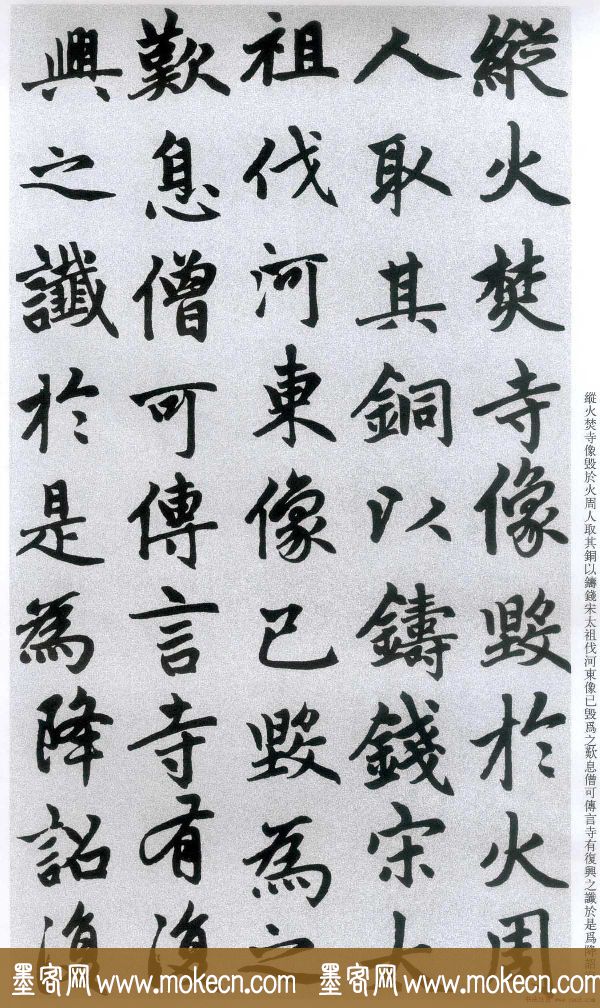 縱火焚寺像毀於火周
人取其銅以鑄錢宋太
祖伐河東像已毀為之
歎息僧可傳言寺有復
興之讖於是為降詔復
縱火焚寺像毀於火周人取其銅以鑄錢宋太祖伐河東像已毀爲之歎息僧可傳言寺有復興之讖於是爲降詔
墨客网 www.mokecn.com 墨客网 www.mokecn.com